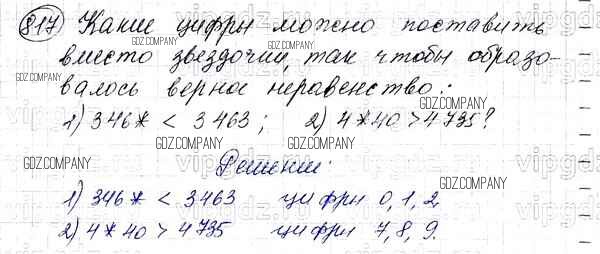 817 Какие цифры можно поставить
вместо звездочки, так чтобы образо-
валось верное неравенство:
1) 346* < 3463; 2) 4*40 > 4735?
Решение:
1) 346* < 3463 цифры 0, 1, 2.
2) 4*40 > 4735 цифры 7, 8, 9.
GDZ.COMPANY
GDZ.COMPANY
GDZ.COMPANY
GDZ.COMPANY
GDZ.COMPANY
GDZ.COMPANY
GDZ.COMPANY
GDZ.COMPANY